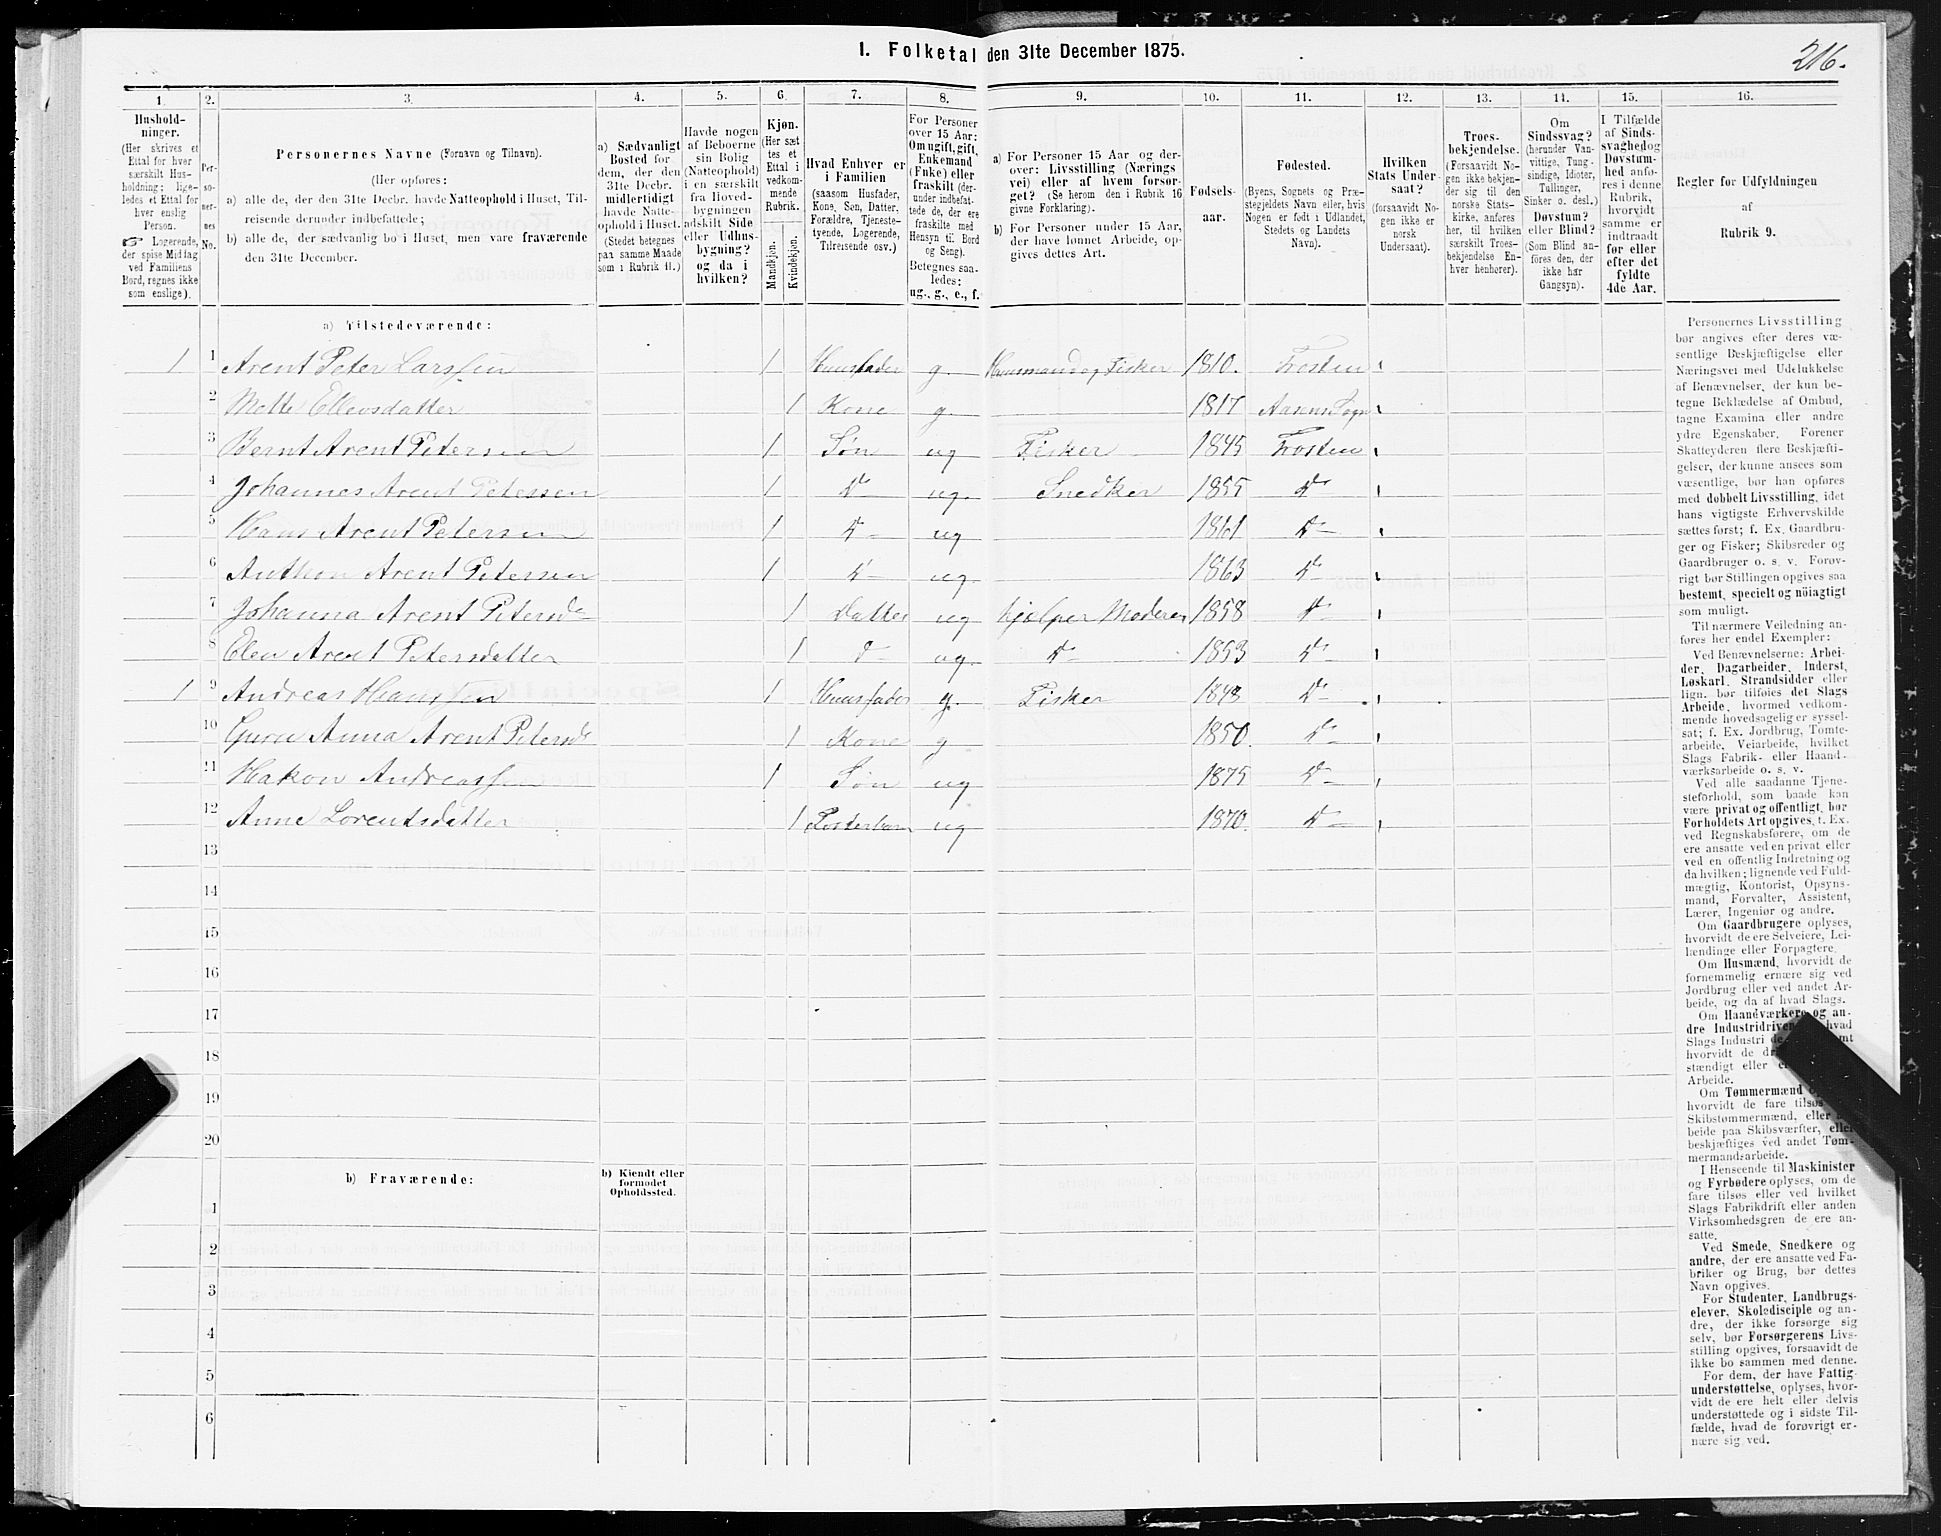 1. Folketal den 31te December 1875.
216.
1. 2. 3. 4. 5. 6. 7. 8. 9. 10. 11. 12. 13. 14. 15. 16.
Hushold-
ninger.
(Her skrives et
Ettal for hver
særskilt Hus-
holdning; lige-
ledes et Ettal for
hver enslig
Person.
☞ Logerende,
der spise Middag
ved Familiens
Bord, regnes ikke
som enslige).
Per-
so-
ner-
nes
No.
Personernes Navne (Fornavn og Tilnavn).
(Her opføres:
a) alle de, der den 31te Decbr. havde Natteophold i Huset, Til-
reisende derunder indbefattede;
b) alle de, der sædvanlig bo i Huset, men vare fraværende
den 31te December.
a) Sædvanligt
Bosted for
dem, der den
31te Decbr.
midlertidigt
havde Natte-
ophold i Huset.
(Stedet betegnes
paa samme Maade
som i Rubrik 11.)
Havde nogen
af Beboerne
sin Bolig
(Natteophold)
i en særskilt
fra Hoved-
bygningen
adskilt Side
eller Udhus-
bygning?
og da i
hvilken?
Kjøn.
(Her sæt
tes et
Ettal i
vedkom-
mende
Rubrik.
Mandkjøn.
Kvindekjøn.
Hvad Enhver er
i Familien
(saasom Husfader,
Kone, Søn, Datter,
Forældre, Tjeneste-
tyende, Logerende,
Tilreisende osv.)
For Personer
over 15 Aar:
Om ugift, gift,
Enkemand
(Enke) eller
fraskilt (der-
under indbefat-
tede de, der ere
fraskilte med
Hensyn til Bord
og Seng).
Betegnes saa-
ledes:
ug., g., e., f.
a) For Personer 15 Aar og der-
over: Livsstilling (Nærings
vei) eller af hvem forsør-
get? (Se herom den i Rubrik 16
givne Forklaring).
b) For Personer under 15 Aar,
der have lønnet Arbeide, op-
gives dettes Art.
Fødsels-
aar.
Fødested.
(Byens, Sognets og Præ-
stegjeldets Navn eller, hvis
Nogen er født i Udlandet,
Stedets og Landets
Navn).
Hvilken
Stats Under-
saat?
(forsaavidt No-
gen ikke er
norsk
Undersaat).
Troes-
bekjendelse.
(Forsaavidt No-
gen ikke bekjen-
der sig til den
norske Stats-
kirke, anføres
her, til hvilken
særskilt Troes-
bekjendelse En-
hver henhører).
Om
Sindssvag?
(herunder Van-
vittige, Tung-
sindige, Idioter,
Tullinger,
Sinker o. desl.)
Døvstum?
eller Blind?
(Som Blind an-
føres den, der
ikke har
Gangsyn).
I Tilfælde
af Sinds-
svaghed og
Døvstum-
hed anfø-
res i denne
Rubrik,
hvorvidt
samme er
indtraadt
før eller
efter det
fyldte
4de Aar.
Regler for Udfyldningen
af
Rubrik 9.
a) Tilstedeværende:
1 1 Arent Peter Larssen 1 Huusfader g. Huusmand og Fisker 1810. Frosten
2 Mette Ellevsdatter 1 Kone g. 1817 Aasens Sogn
3 Bernt Arent Petersen 1 Søn ug Fisker 1845 Frosten
4 Johannes Arent Petersen 1 Do ug. Snedker 1855 Do
5 Hans Arent Petersen 1 Do ug 1861 Do
6 Anthon Arent Petersen 1 Do ug. 1863 Do
7 Johanna Arent Petersd 1 Datter ug hjelper Moderen 1858 Do
8 Elen Arent Petersdatter 1 Do ug. Do 1853 Do
1 9 Andreas Hanssen 1 Huusfader g. Fisker 1848 Do
10 Guru Anna Arent Petersd 1 Kone g 1850. Do
11 Hakon Andreassen 1 Søn ug 1875 Do
12 Anne Lorentsdatter 1 Fosterbarn ug 1870. Do
13
14
15
16
17
18
19
20
b) Fraværende:
b) Kjendt eller
formodet
Opholdssted.
1
2
3
4
5
6
Personernes Livsstilling
bør angives efter deres væ-
sentlige Beskjæftigelse eller
Næringsvei med Udelukkelse
af Benævnelser, der kun be-
tegne Beklædelse af Ombud,
tagne Examina eller andre
ydre Egenskaber. Forener
Skatteyderen flere Beskjæfti-
gelser, der kunne ansees som
væsentlige, bør han opføres
med dobbelt Livsstilling, idet
hans vigtigste Erhvervskilde
sættes først; f. Ex. Gaardbru-
ger og Fisker; Skibsreder og
Gaardbruger o. s. v. Forøv-
rigt bør Stillingen opgives saa
bestemt, specielt og nøiagtigt
som muligt.
Til nærmere Veiledning an-
føres her endel Exempler:
Ved Benævnelserne: Arbei-
der, Dagarbeider, Inderst,
Løskarl, Strandsidder eller
lign. bør tilføies det Slags
Arbeide, hvormed vedkom-
mende hovedsagelig er syssel-
sat; f. Ex. Jordbrug, Tomte-
arbeide, Veiarbeide, hvilket
Slags Fabrik- eller Haand-
værksarbeide o. s. v.
Ved alle saadanne Tjene-
steforhold, som baade kan
være privat og offentligt, bør
Forholdets Art opgives, t. Ex.
ved Regnskabsførere, om de
ere ansatte ved en privat eller
ved en offentlig Indretning og
da hvilken; lignende ved Fuld-
mægtig, Kontorist, Opsyns-
mand, Forvalter, Assistent,
Lærer, Ingeniør og andre.
Om Gaardbrugere oplyses,
hvorvidt de ere Selveiere, Lei-
lændinge eller Forpagtere.
Om Husmænd, hvorvidt de
fornemmelig ernære sig ved
Jordbrug eller ved andet Ar-
beide, og da af hvad Slags.
Om Haandværkere og an-
dre Industridrivende, hvad
Slags Industri de
hvorvidt de
stændigt eller
Arbeide.
Om Tømmermænd
hvorvidt de fare tilsøs
Skibstømmermænd, eller
beide paa Skibsværfter, eller
beskjæftiges ved andet Tøm-
mermandsarbeide.
I Henseende til Maskinister
og Fyrbødere oplyses, om de
fare tilsøs eller ved hvilket
Slags Fabrikdrift eller anden
Virksomhedsgren de ere an-
satte.
Ved Smede, Snedkere og
andre, der ere ansatte ved Fa-
briker og Brug, bør dettes
Navn opgives.
For Studenter, Landbrugs-
elever, Skoledisciple og an-
dre, der ikke forsørge sig
selv, bør Forsørgerens Livs-
stilling opgives, forsaavidt de
ikke bo sammen med denne.
For dem, der have Fattig-
understøttelse, oplyses, hvor-
vidt de ere helt eller delvis
understøttede og i sidste Til-
fælde, hvad de forøvrigt er-
nære sig ved.